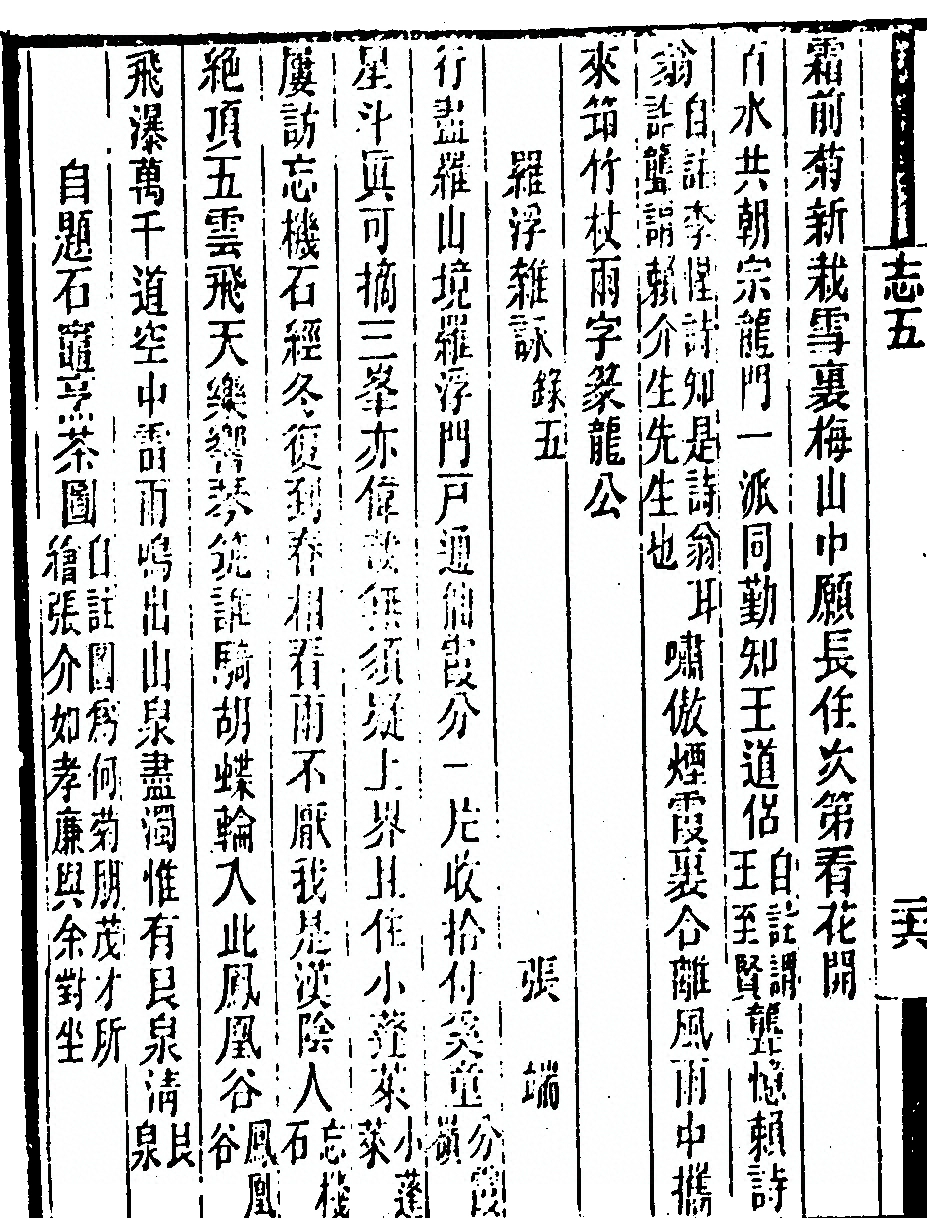 志五
二六
霜前菊新栽雪裏梅山中願長住次第看花開
百水共朝宗龍門一派同勤知王道侶自註謂王至賢龔憶賴詩
翁自註李惺詩知是詩翁耳詁龔謂賴介生先生也嘯傲煙霞裏合離風雨中攜
來筇竹杖雨字篆龍公
羅浮雜詠錄五 張端
行盡羅山境羅浮門戸通仙霞分一片收拾付奚童分霞嶺
星斗真可摘三峯亦偉哉無須疑上界且住小蓬萊小蓬萊
屢訪忘機石經冬復到春相看兩不厭我是漢陰人忘機石
絶頂五雲飛天樂響琴筑誰騎胡蝶輪入此鳳凰谷鳳凰谷
飛瀑萬千道空中雷雨鳴出山泉盡濁惟有艮泉淸艮泉
自題石竈烹茶圖自註圖爲何菊朋茂才所繪張介如孝廉與余對坐